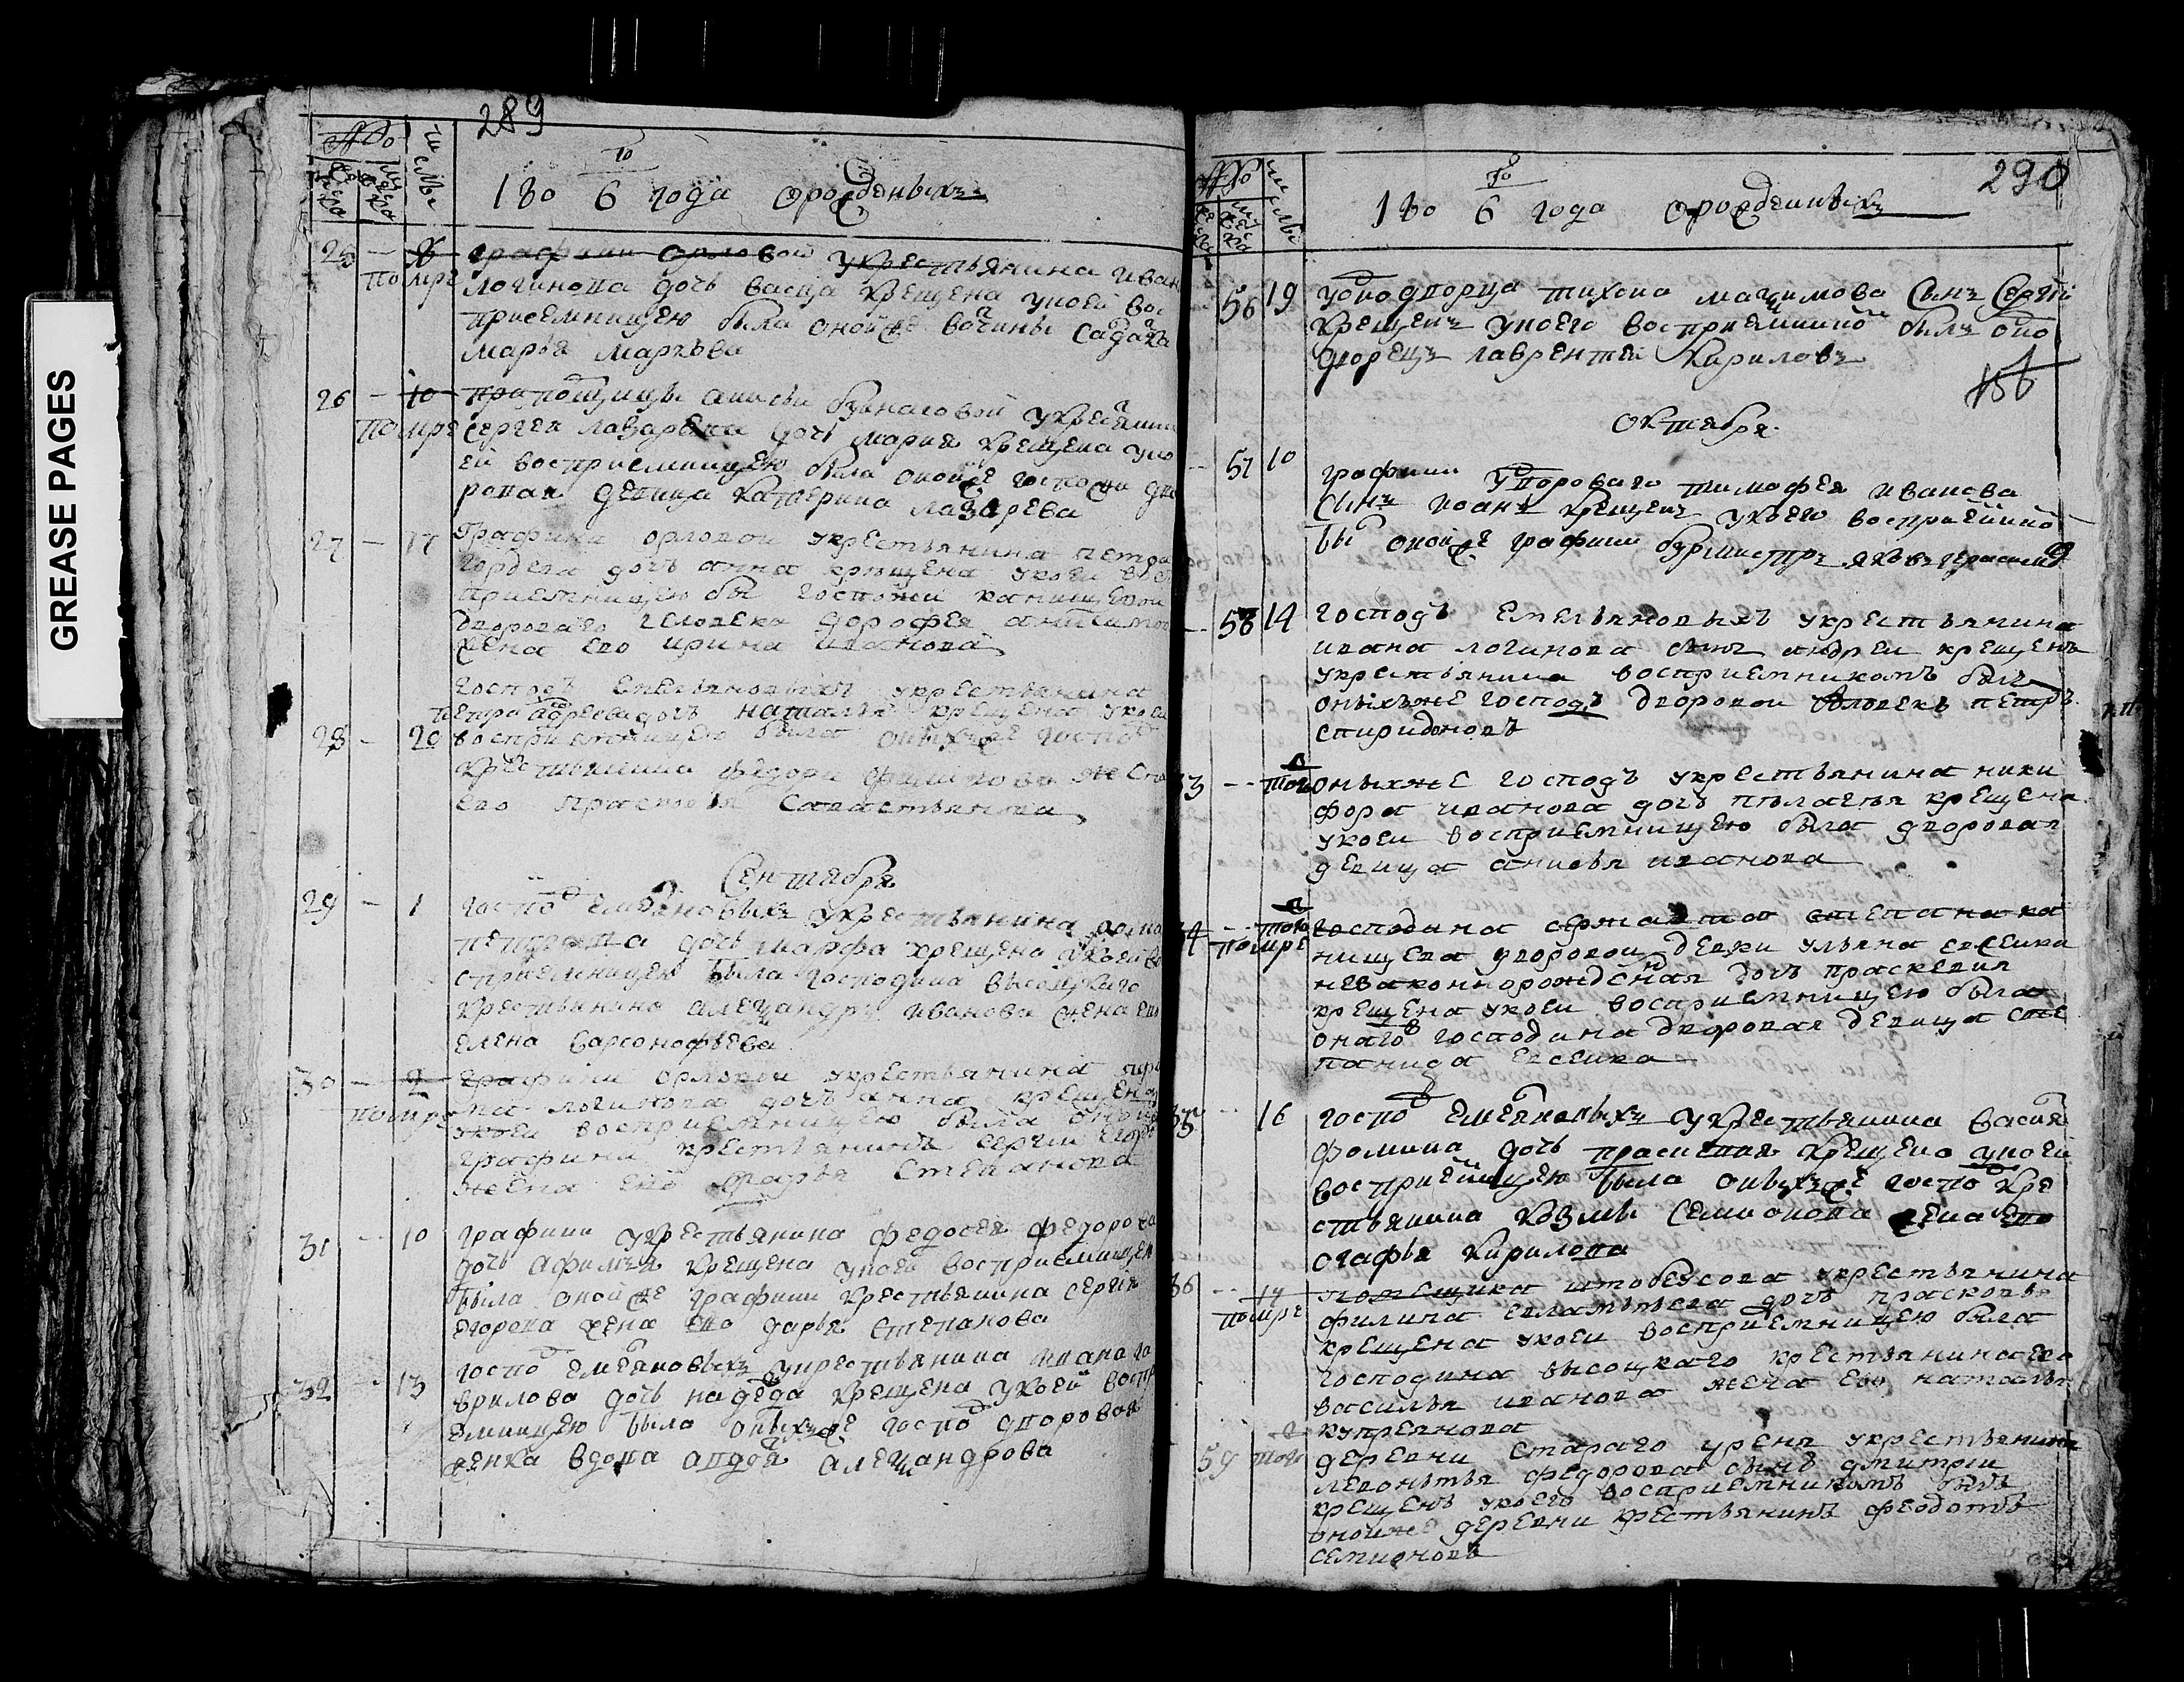 GREASE PAGES
289
№
числы
180 6 года ѻрожденныхъ
25 – 16 графини орловой укрестьянина иван
помре логинова дочь васца крещена укоей вос
приемницею была онойже вочины садака
марья маркѣва
26 – 10 припощицы анисьи бурнаговой укрестьянина
помре сергея лазарева дочь мария крещена уко
ей восприемницею была онойже госпожи дво
ровая девица катерина лазарева
27 – 17 Графини орловой укрестьянина петра
гордѣева дочь анна крещена укоеи вос
приемницею бы госпожи канищевои
двороваго человека дорофея анисимо
жена ево ирина иванова
господъ емельяновыхъ укрестьянина
петра андреева дочь наталья крещена укоеи
28 – 20 восприемницею была оныхже госпо
крестьянина федора филипова жена
ево прасковья савастьянова
Сентября
29 – 1 господ емельяновыхъ укрестьянина
дочь марфа крещена укоей во
сприемницею была господина высоцкаго
крестьянина алеѯандра иванова жена ево
елена варсонофьева
30 – 2 графини орловои укрестьянина
логинова дочь анна крещена
помре укоеи восприемницею была
графини крестьянинъ сергеи егоро
жена ево дарья степанова
31 – 10 графини укрестьянина федосея федорова
дочь афимья крещена укоей восприемницею
была онойже графини крестьянина сергія
егорова жена ево дарья степанова
32 – 13 господ емельяновыхъ укрестьянина ивана га
врилова дочь надежда крещена укоей воспри
емницею была оныхже господ дворовая
женка вдова авдотя алеѯандрова
290
№
числы
180 6 года ѻрожденныхъ
56 19 уоднодворца тихона маѯимова сынъ Сергѣй
крещенъ укоего восприемникомъ былъ одно
дворецъ лаврентей кириловъ
156
октября
57 10 графини удвороваго тимофея иванова
сынъ иоанъ крещенъ укоего восприемникомъ
бы онойже графини бурмистръ яковъ герасимов
58 14 господъ емельяновыхъ укрестьянина
ивана логинова сынъ андреи крещенъ
укрестьянина восприемникомъ былъ
оныхъже господъ дворовои человекъ петръ
спиридоновъ
33 – того оныхже господъ укрестьянина ники
фора иванова дочь пѣлагѣя крещена
укоеи восприемницею была дворовая
девица анисья иванова
34 – того господина сержанта степана ка
помре нищева дворовои девки ульяна евсеива
незаконнорожденная дочь праскевия
крещена укоеи восприемницею была
онаго господина дворовая девица сте
панида евсеива
35 – 16 господ емельяновыхъ укрестьянина василя
фомина дочь праскевия крещена укоей
восприемницею была оныхже господ кре
стьянина козмы семионова жена ево
агафья кирилова
36 – 17 помещика штобеусова укрестьянина
помре филипа евлампьева дочь прасковья
крещена укоеи восприемницею была
господина высоцкаго крестьянина его
василья иванова жена ево наталья
куприянова
59 того деревни стараго уреня укрестьянина
левонтья федорова сынъ дмитрии
крещенъ укоего восприемникомъ былъ
онойже деревни крестьянинъ феодотъ
семионовъ